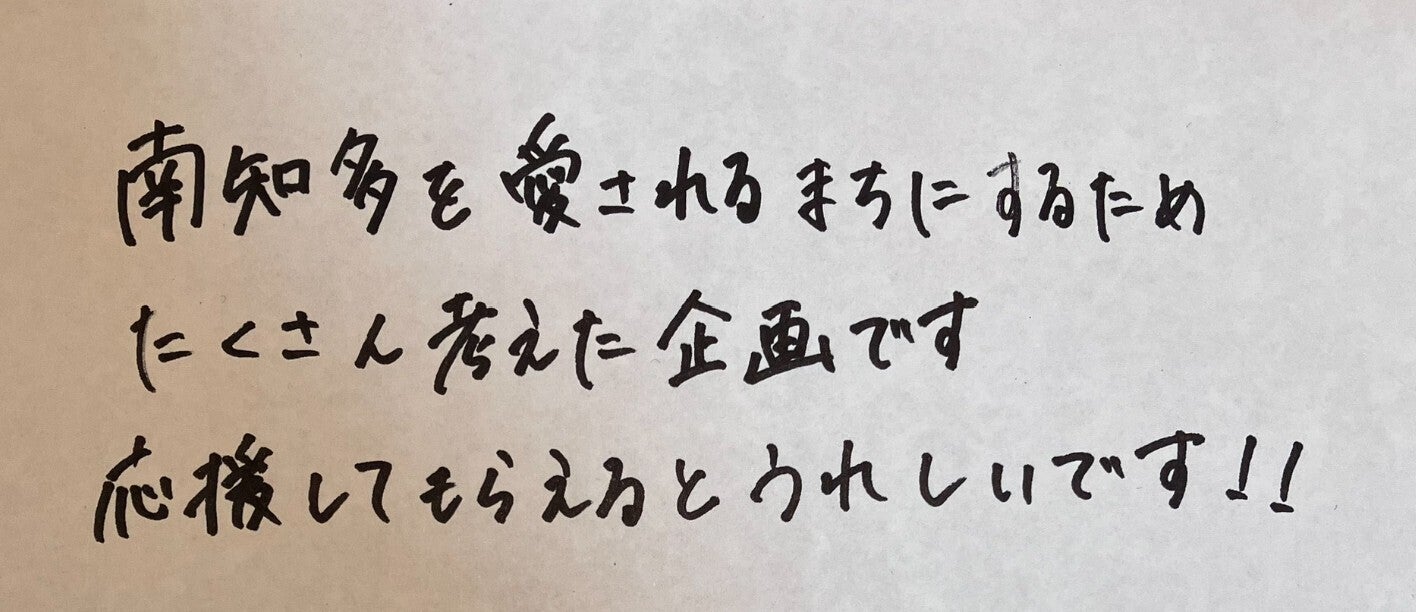 南知多を愛されるまちにするため
たくさん考えた企画です
応援してもらえるとうれしいです!!